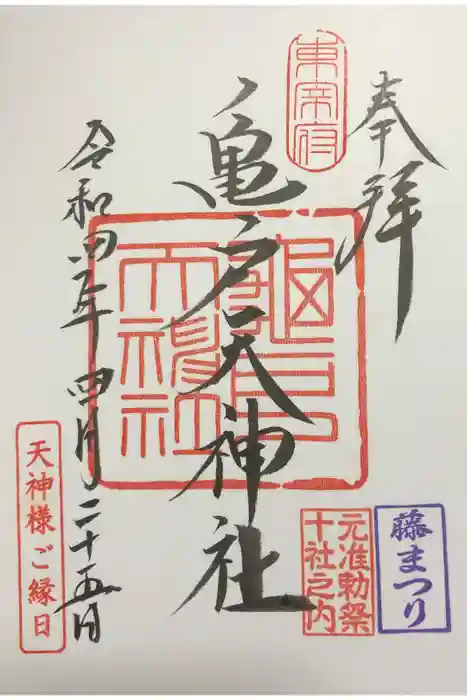 奉拝
東宰府
亀戸天神社
龜戸
天神社
令和四年四月二十五日
藤まつり
元准勅祭
十社之内
天神様ご縁日